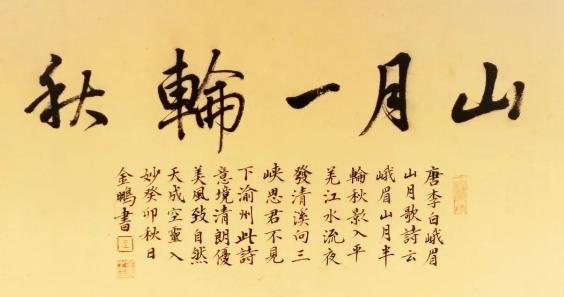 山月一輪秋
唐李白峨眉
山月歌詩云
峨眉山月半
輪秋影入平
羌江水流夜
發清溪向三
峽思君不見
下渝州此詩
意境清朗優
美風致自然
天成空靈入
妙癸卯秋日
金鵬書